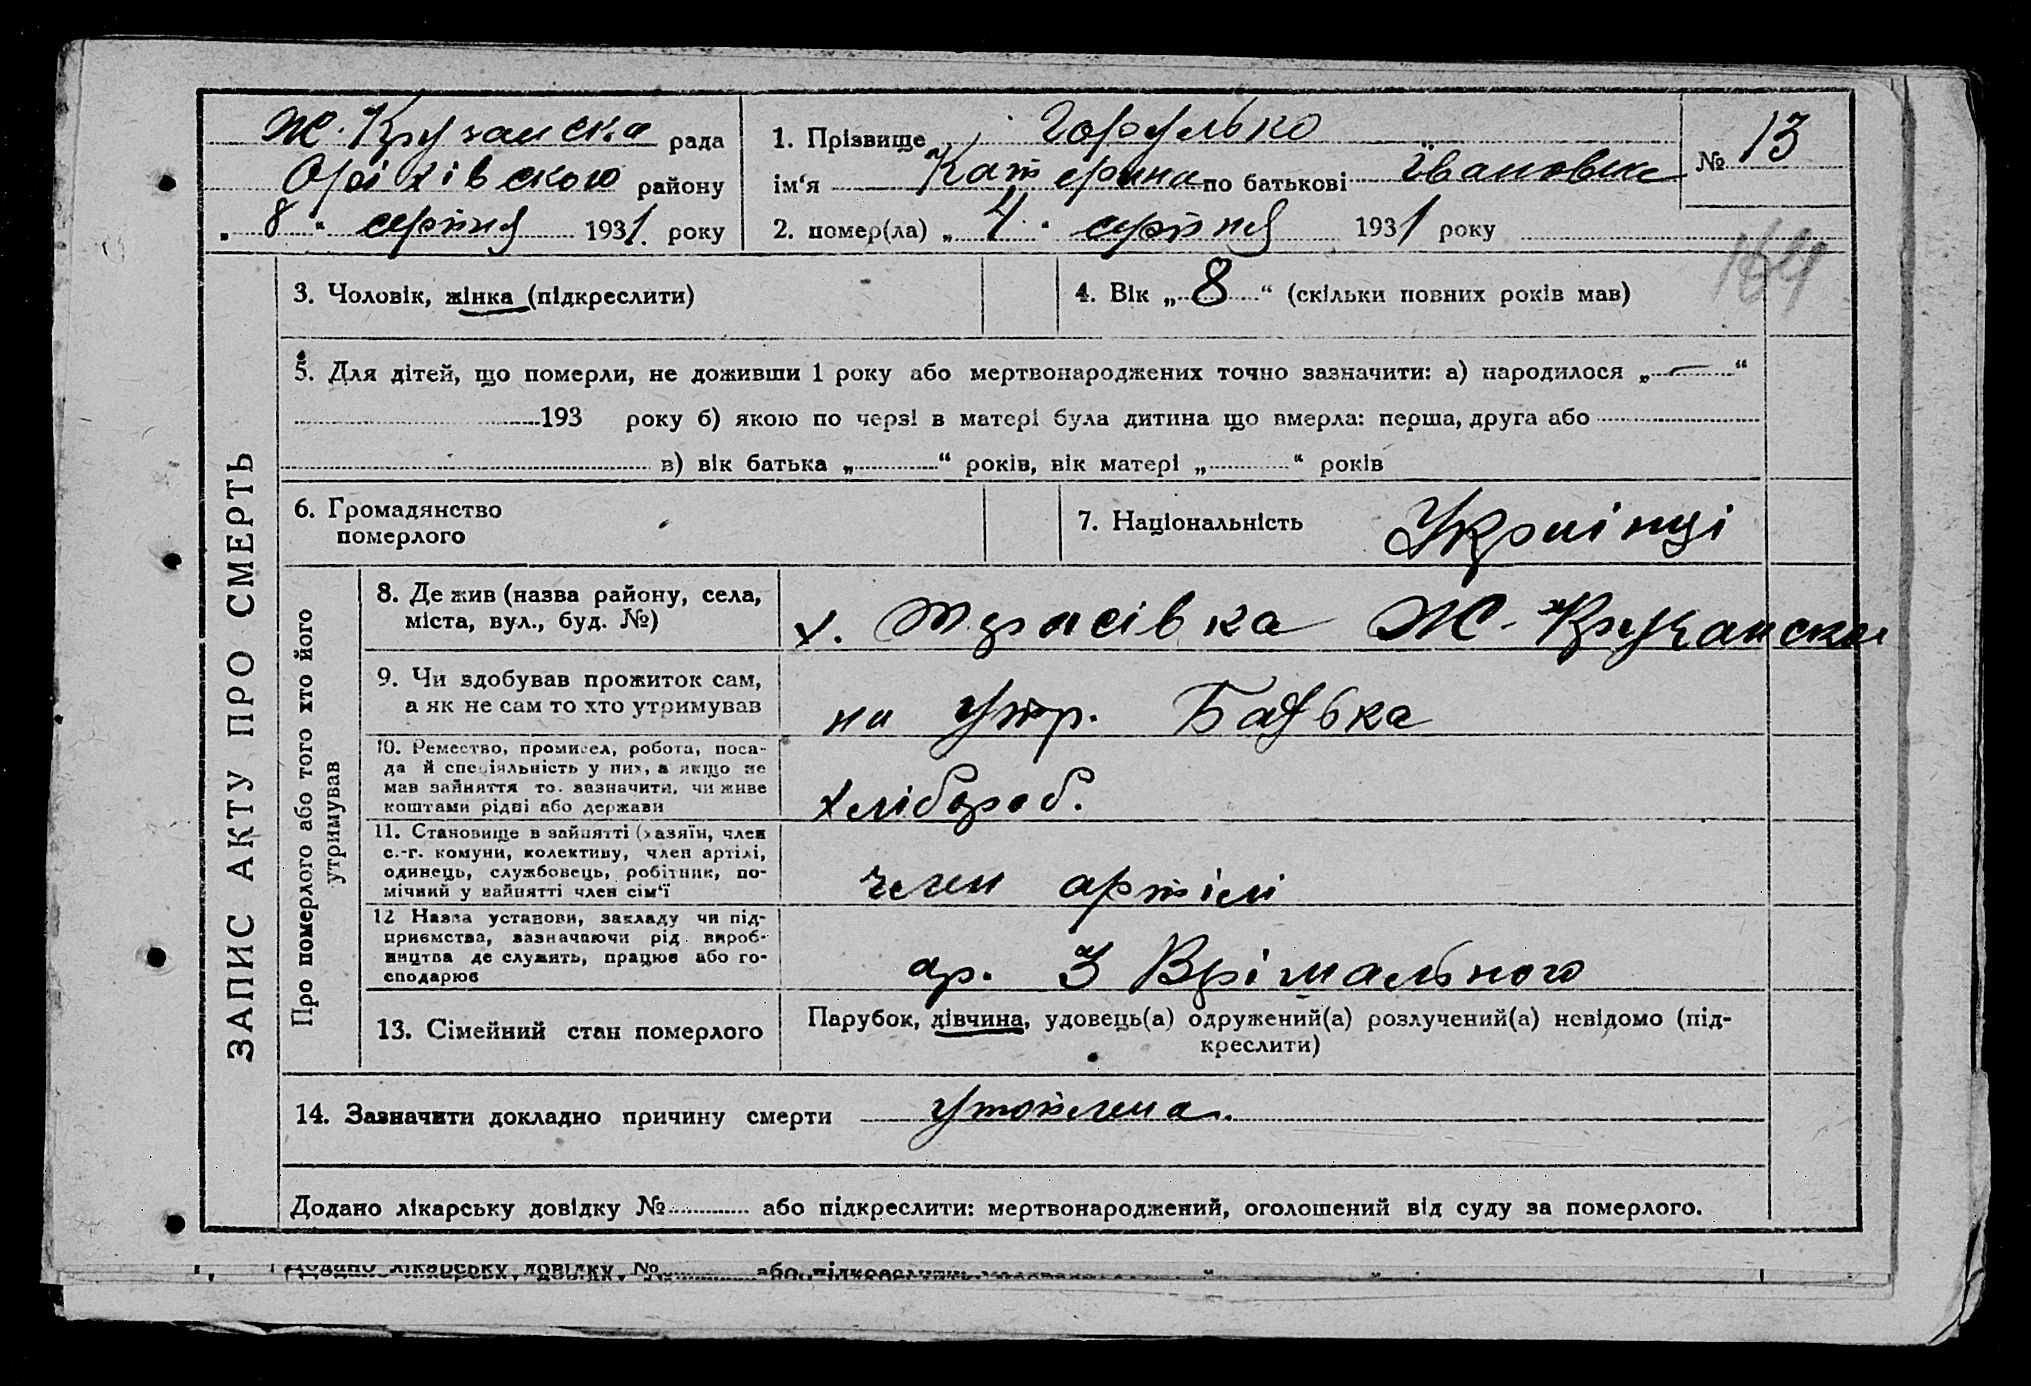 Ж. Кручанска рада
Оріхівского району
„ 8 “ серпня 1931. року
1. Прізвище Горулько
ім‘я Катерина по батькові Івановна
2. помер(ла) „ 4 “ серпня 1931 року
№ 13
164
ЗАПИС АКТУ ПРО СМЕРТЬ
3. Чоловік, жінка (підкреслити)
4. Вік „ 8 “ (скільки повних років мав)
5. Для дітей, що померли, не доживши 1 року або мертвонароджених точно зазначити: а) народилося „ — “
193 року б) якою по черзі в матері була дитина що вмерла: перша, друга або
в) вік батька „ “ років, вік матері „ “ років
6. Громадянство
померлого
7. Національність Украінці
Про померлого або того хто його
утримував
8. Де жив (назва району, села,
міста, вул., буд. №)
х. Тарасівка Ж-Кручанска
9. Чи здобував прожиток сам,
а як не сам то хто утримував
на утр. Батька
10. Ремество, промисел, робота, поса-
да й спеціяльність у них, а якщо не
мав зайняття то зазначити, чи живе
коштами рідні або держави
хлібороб.
11. Становище в зайнятті (хазяїн, член
с.-г. комуни, колективу, член артілі,
одинець, службовець, робітник, по-
мічний у зайнятті член сім‘ї
член артілі
12 Назва установи, закладу чи під-
приємства, зазначаючи рід вироб-
ництва де служить, працює або го-
сподарює
ар. З Врімального
13. Сімейний стан померлого
Парубок, дівчина, удовець(а) одружений(а) розлучений(а) невідомо (під-
креслити)
14. Зазначити докладно причину смерти утоплена.
Додано лікарську довідку № або підкреслити: мертвонароджений, оголошений від суду за померлого.
Додано лікарську довідку № або підкреслити: